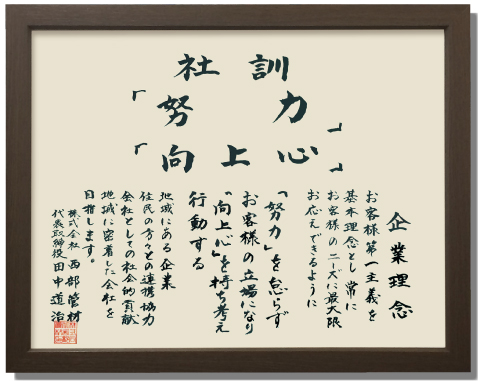 社訓
「努力」
「向上心」
企業理念
お客様第一主義を
基本理念とし常に
お客様のニーズに最大限
お応えできるように
「努力」を怠らず
お客様の立場になり
「向上心」を持ち考え
行動する
地域にある企業
住民の方々との連携協力
会社としての社会的貢献
地域に密着した会社を
目指します。
株式会社 西部管材
代表取締役 田中道治